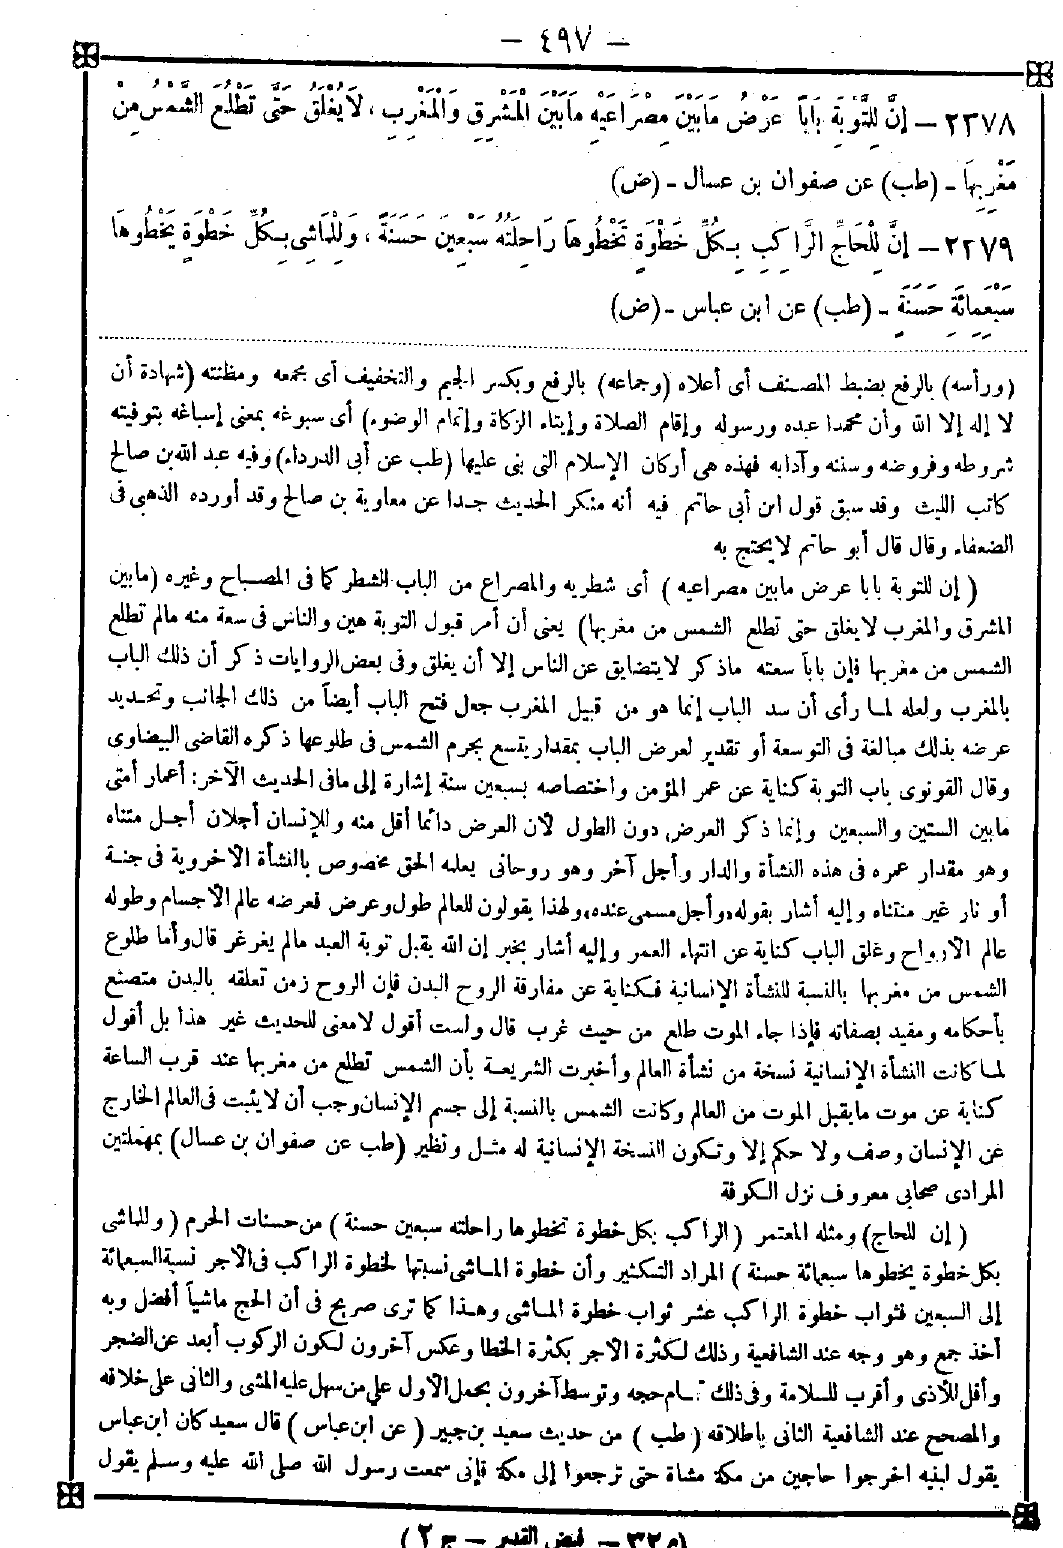 — ٤٩٧ —
٢٣٧٨ — إِنَّ لِلتَّوْبَةِ بَابًا عَرْضُ مَابَيْنَ مِصْرَاعَيْهِ مَابَيْنَ الْمَشْرِقِ وَالْمَغْرِبِ ، لَا يُغْلَقُ حَتَّى تَطْلُعَ الشَّمْسُ مِنْ
مَغْرِبِهَا - (طب) عن صفوان بن عسال - (ض)
٢٣٧٩ — إِنَّ لِلْحَاجِّ الرَّاكِبِ بِكُلِّ خَطْوَةٍ تَخْطُوهَا رَاحِلَتُهُ سَبْعِينَ حَسَنَةً ، وَلِلْمَاشِى بِكُلِّ خَطْوَةٍ يَخْطُوهَا
سَبْعَمِائَةِ حَسَنَةٍ - (طب) عن ابن عباس - (ض)
(ورأسه) بالرفع بضبط المصنف أى أعلاه (وجماعه) بالرفع وبكسر الجيم والتخفيف أى مجمعه ومظنته (شهادة أن
لا إله إلا الله وأن محمدا عبده ورسوله وإقام الصلاة وإيتاء الزكاة وإتمام الوضوء) أى سبوغه بمعنى إسباغه بتوفيته
شروطه وفروضه وسننه وآدابه فهذه هى أركان الإسلام التى بنى عليها (طب عن أبى الدرداء) وفيه عبد الله بن صالح
كاتب الليث وقد سبق قول ابن أبى حاتم فيه أنه منكر الحديث جدا عن معاوية بن صالح وقد أورده الذهبى فى
الضعفاء وقال قال أبو حاتم لا يحتج به
(إن للتوبة بابا عرض مابين مصراعيه) أى شطريه والمصراع من الباب الشطر كما فى المصباح وغيره (مابين
المشرق والمغرب لايغلق حتى تطلع الشمس من مغربها) يعنى أن أمر قبول التوبة هين والناس فى سعة منه مالم تطلع
الشمس من مغربها فإن باباً سعته ماذكر لايتضايق عن الناس إلا أن يغلق وفى بعض الروايات ذكر أن ذلك الباب
بالمغرب ولعله لما رأى أن سد الباب إنما هو من قبيل المغرب جعل فتح الباب أيضاً من ذلك الجانب وتحديد
عرضه بذلك مبالغة فى التوسعة أو تقدير لعرض الباب بمقدار يتسع بجرم الشمس فى طلوعها ذكره القاضى البيضاوى
وقال القونوى باب التوبة كناية عن عمر المؤمن واختصاصه بسبعين سنة إشارة إلى مافى الحديث الآخر: أعمار أمتى
مابين الستين والسبعين وإنما ذكر العرض دون الطول لأن العرض دائما أقل منه وللإنسان أجلان أجل متناه
وهو مقدار عمره فى هذه النشأة والدار وأجل آخر وهو روحانى يعلمه الحق مخصوص بالنشأة الاخروية فى جنة
أو نار غير متناه وإليه أشار بقوله «وأجل مسمى عنده» ولهذا يقولون للعالم طول وعرض فعرضه عالم الأجسام وطوله
عالم الأرواح وغلق الباب كناية عن انتهاء العمر وإليه أشار بخبر إن الله يقبل توبة العبد مالم يغرغر قال وأما طلوع
الشمس من مغربها بالنسبة للنشأة الإنسانية فكناية عن مفارقة الروح البدن فإن الروح زمن تعلقه بالبدن متصنع
بأحكامه ومفيد بصفاته فإذا جاء الموت طلع من حيث غرب قال ولست أقول لامعنى للحديث غير هذا بل أقول
لما كانت النشأة الإنسانية نسخة من نشأة العالم وأخبرت الشريعة بأن الشمس تطلع من مغربها عند قرب الساعة
كناية عن موت مايقبل الموت من العالم وكانت الشمس بالنسبة إلى جسم الإنسان وجب أن لايثبت فى العالم الخارج
عن الإنسان وصف ولا حكم إلا وتكون النسخة الإنسانية له مثل ونظير (طب عن صفوان بن عسال) بمهملتين
المرادى صحابى معروف نزل الكوفة
(إن للحاج) ومثله المعتمر (الراكب بكل خطوة تخطوها راحلته سبعين حسنة) من حسنات الحرم (وللماشى
بكل خطوة يخطوها سبعمائة حسنة) المراد التكثير وأن خطوة الماشى نسبتها لخطوة الراكب فى الأجر نسبة السبعمائة
إلى السبعين فثواب خطوة الراكب عشر ثواب خطوة الماشى وهذا كما ترى صريح فى أن الحج ماشياً أفضل وبه
أخذ جمع وهو وجه عند الشافعية وذلك لكثرة الأجر بكثرة الخطا وعكس آخرون لكون الركوب أبعد عن الضجر
وأقل للأذى وأقرب للسلامة وفى ذلك تمام حجه وتوسط آخرون بحمل الأول على من سهل عليه المشى والثانى على خلافه
والمصحح عند الشافعية الثانى بإطلاقه (طب) من حديث سعيد بن جبير (عن ابن عباس) قال سعيد كان ابن عباس
يقول لبنيه اخرجوا حاجين من مكة مشاة حتى ترجعوا إلى مكة فإنى سمعت رسول الله صلى الله عليه وسلم يقول
(م ٣٢ — فيض القدير — ج ٢)